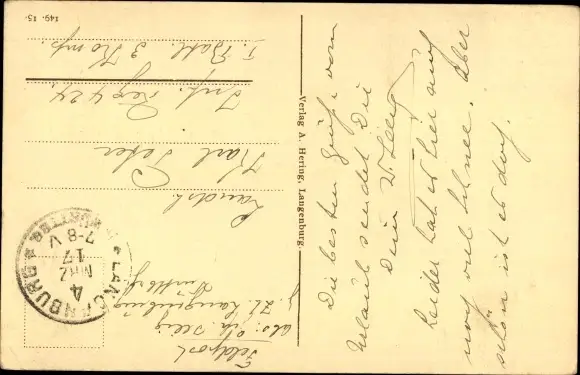 Feldpost
abs: Seeg
z. Zt. Langenburg
Landst.
Karl Peter
Inf. Reg 424
I. Batl. 3 Komp.
LANGENBURG
4 MRZ 17
7-8 V
WÜRTTBG.
149. 15.
Verlag A. Hering, Langenburg.
Die besten Grüße vom
Urlaub sendet Dir
Dein W. Seeg
Leider hat es hier auch
noch viel Schnee. Aber
schön ist es doch.